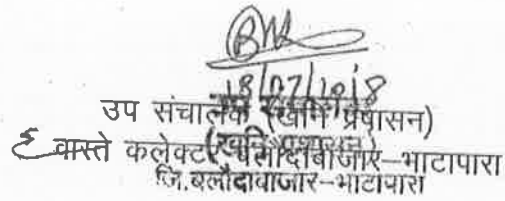 18/07/2018
उप संचालक (खनि प्रशासन)
वास्ते कलेक्टर बलौदाबाजार–भाटापारा
जि.बलौदाबाजार–भाटापारा